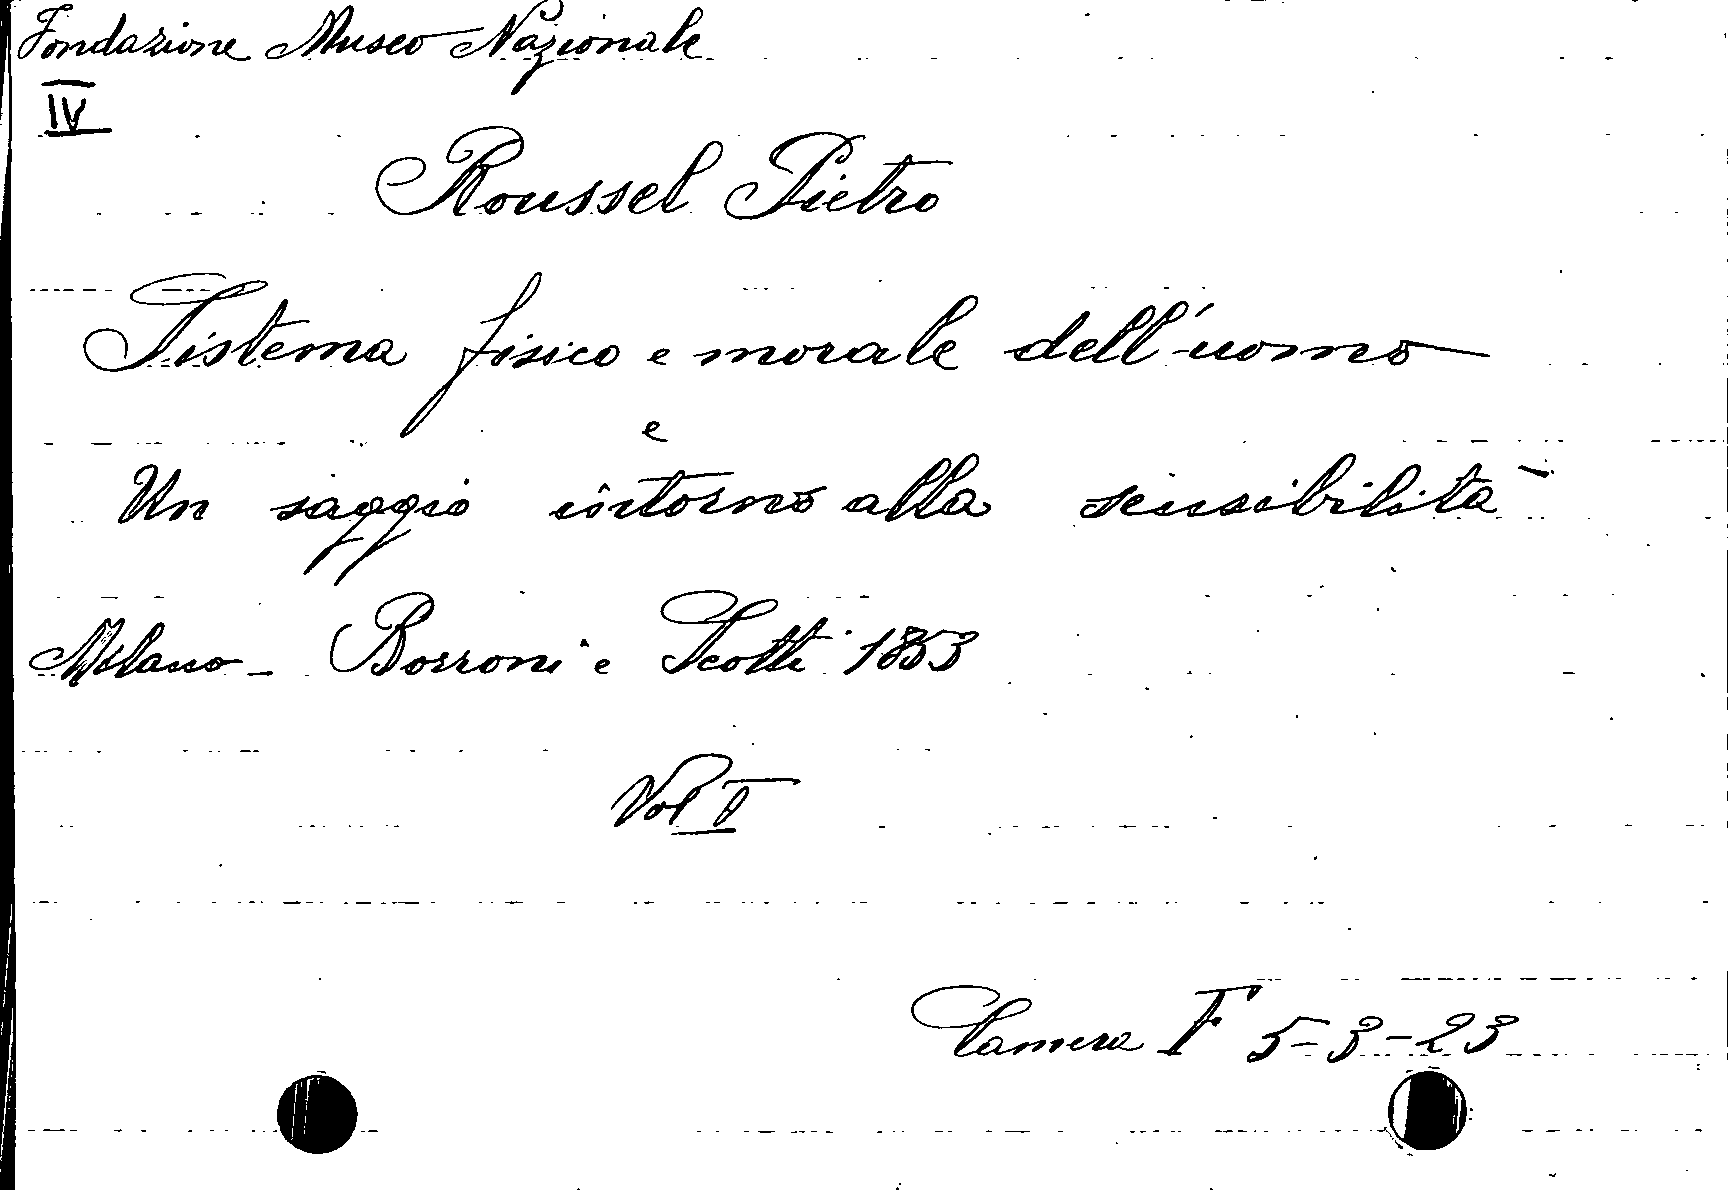 Fondazione Museo Nazionale
IV
Roussel Pietro
Sistema fisico e morale dell'uomo
e
Un saggio intorno alla sensibilità
Milano - Borroni e Scotti 1853
Vol I
Camera F 5-3-23